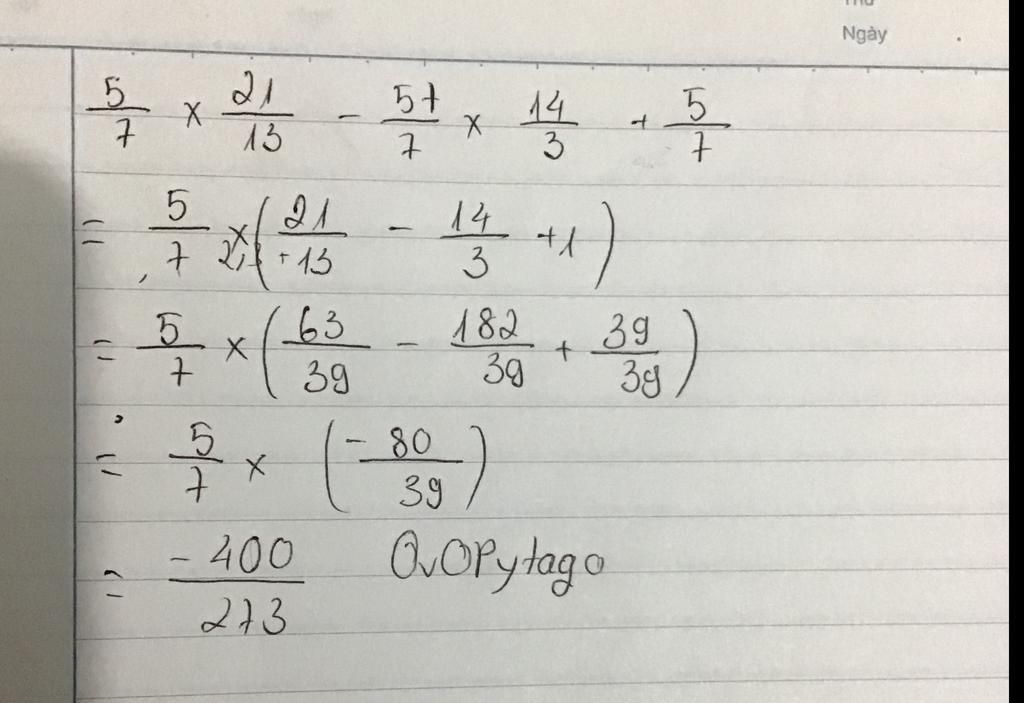 Ngày
5/7 × 21/13 - 57/7 × 14/3 + 5/7
= 5/7 × (21/13 - 14/3 + 1)
= 5/7 × (63/39 - 182/39 + 39/39)
= 5/7 × (-80/39)
= -400/273 OvOPytago